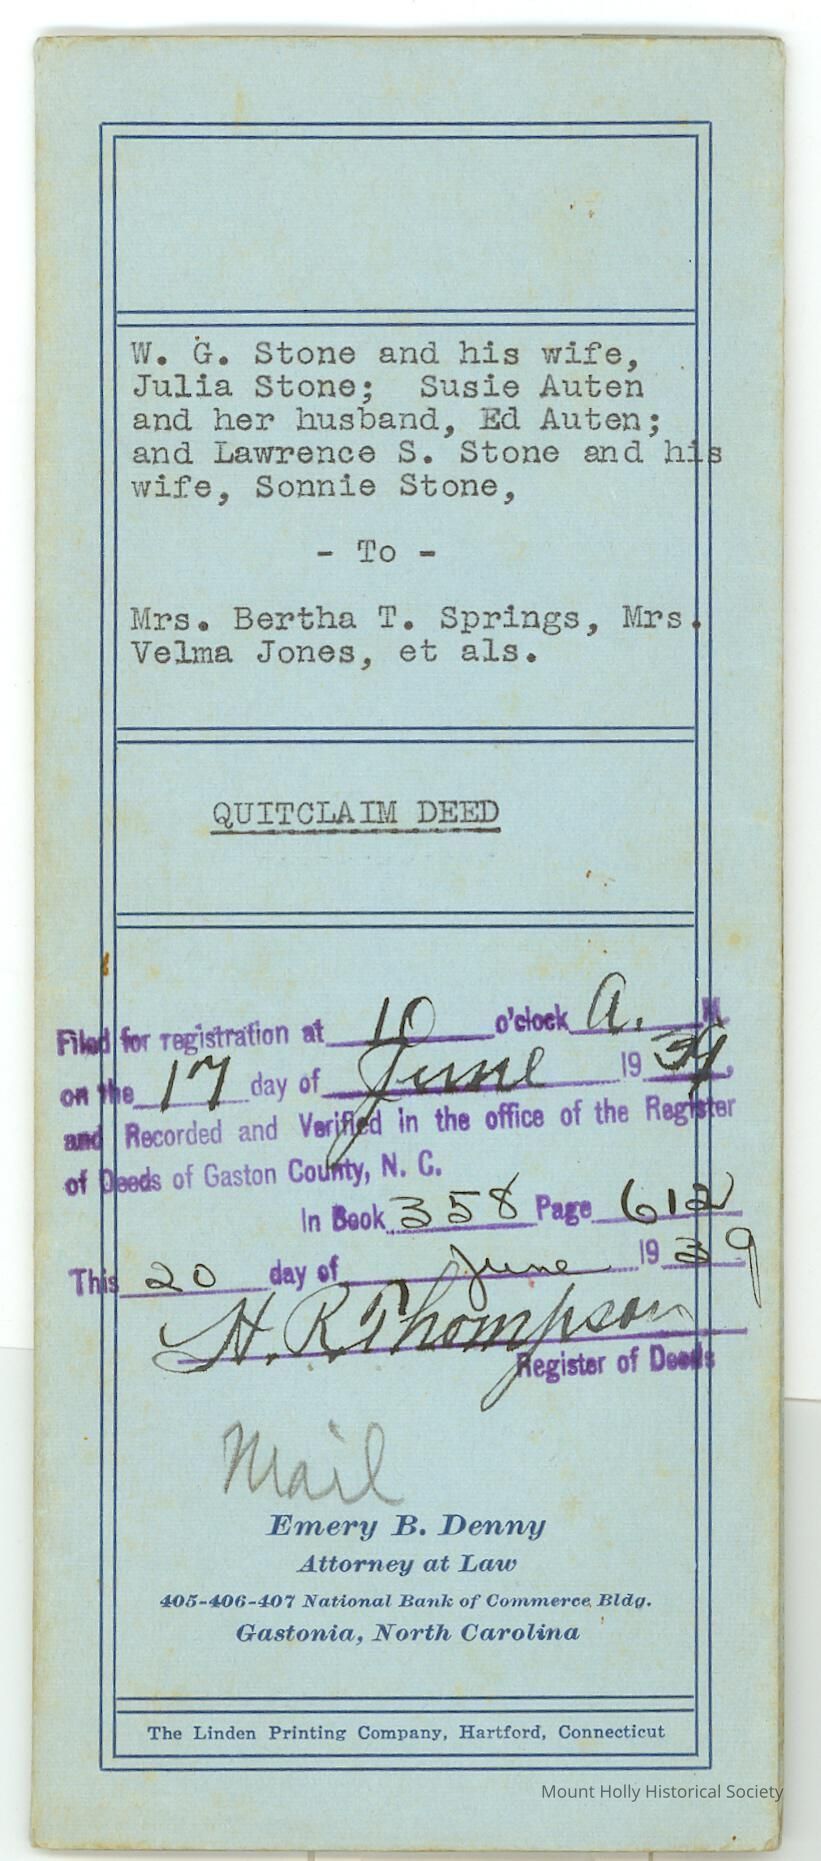 W. G. Stone and his wife,
Julia Stone; Susie Auten
and her husband, Ed Auten;
and Lawrence S. Stone and his
wife, Sonnie Stone,
- To -
Mrs. Bertha T. Springs, Mrs.
Velma Jones, et als.
QUITCLAIM DEED
Filed for registration at 10 o'clock A. M
on the 17 day of June 1939,
and Recorded and Verified in the office of the Register
of Deeds of Gaston County, N. C.
In Book 358 Page 612
This 20 day of June 1939
H. R. Thompson
Register of Deeds
Mail
Emery B. Denny
Attorney at Law
405-406-407 National Bank of Commerce Bldg.
Gastonia, North Carolina
The Linden Printing Company, Hartford, Connecticut
Mount Holly Historical Society